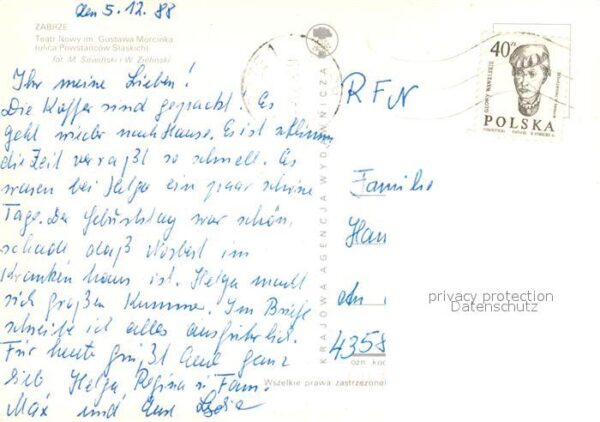 den 5.12.88
ZABRZE
Teatr Nowy im. Gustawa Morcinka
(ulica Powstańców Śląskich)
fot. M. Sowiński i W. Zieliński
Ihr meine Lieben!
Die Koffer sind gepackt! Es
geht wieder nach Hause. Es ist schlimm
die Zeit verraßt so schnell. Es
waren bei Helga ein paar schöne
Tage. Der Geburtstag war schön,
schade, daß Norbert im
Krankenhaus ist. Helga macht
sich großen Kummer. Im Briefe
schreibe ich alles ausführlich.
Für heute grüßt Euch ganz
lieb Helga Regina u. Fam.
Max und Eure
KRAJOWA AGENCJA WYDAWNICZA
40 zł
POLSKA
RFN
Familie
Han
An
4358
privacy protection
Datenschutz
ozn. kod
Wszelkie prawa zastrzeżone